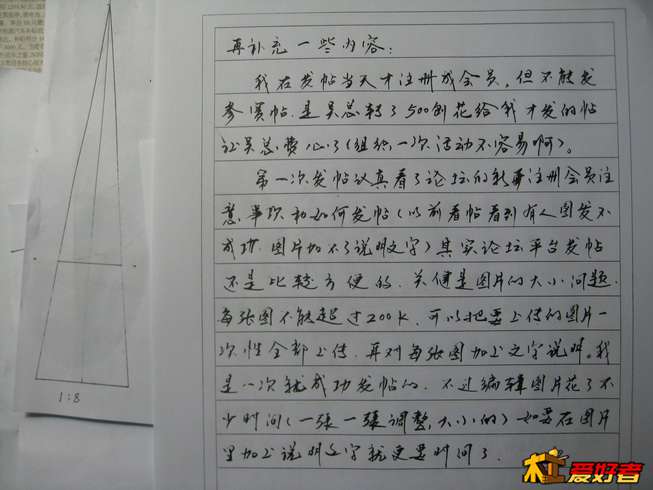 再补充一些内容：
我在发帖当天才注册成会员，但不能发
参赛帖.是吴总转了500刨花给我才发的帖
让吴总费心了（组织一次活动不容易啊）。
第一次发帖认真看了论坛的新手注册会员注
意事项和如何发帖（以前看帖看到有人图发不
成功.图片加不了说明文字）其实论坛平台发帖
还是比较方便的.关键是图片的大小问题.
每张图不能超过200K.可以把要上传的图片一
次性全部上传.再对每张图加上文字说明。我
是一次就成功发帖的.不过编辑图片花了不
少时间（一张一张调整.大小的）如要在图片
里加上说明文字就更要时间了.
1:8
木工爱好者